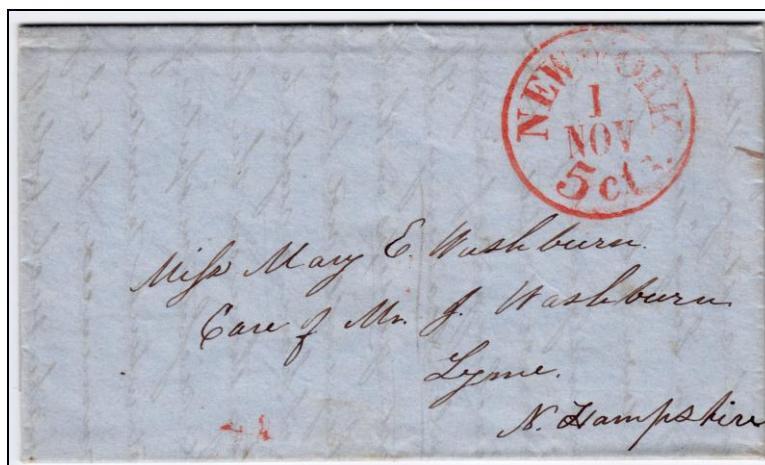 NEW YORK
1
NOV
5 cts.
Miss Mary E. Washburn.
Care of Mr. J. Washburn
Lyme.
N. Hampshire